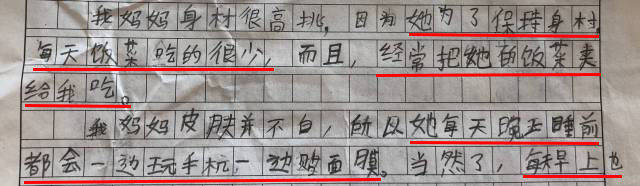 我妈妈身材很高挑，因为她为了保持身材，
每天饭菜吃的很少，而且，经常把她的饭菜夹
给我吃。
我妈妈皮肤并不白，所以她每天晚上睡前
都会一边玩手机一边敷面膜。当然了，每早上也